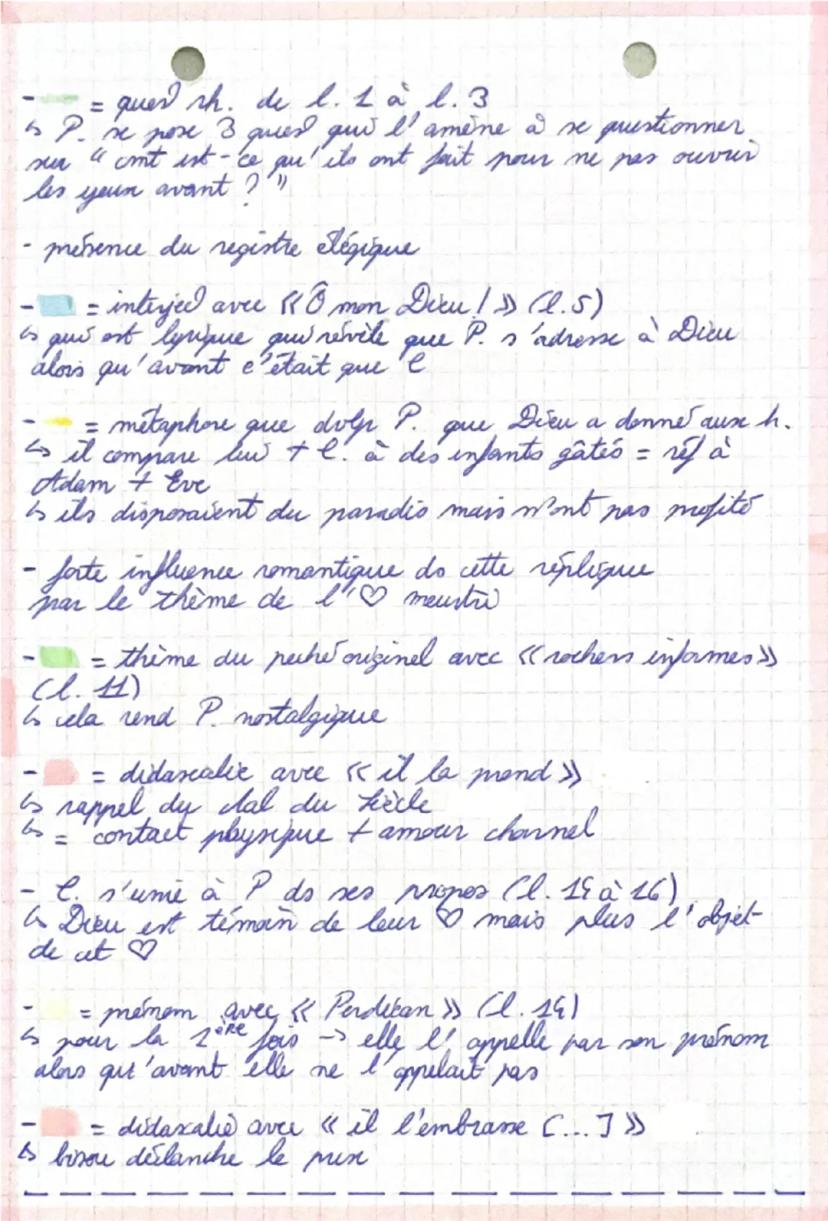 - = ques° rh. de l. 1 à l. 3
↳ P. se pose 3 ques° qui l'amène à se questionner
sur "cmt est-ce qu'ils ont fait pour ne pas ouvrir
les yeux avant ?"
- présence du registre élégique
- = interjec° avec « Ô mon Dieu ! » (l. 5)
↳ qui est lyrique qui révèle que P. s'adresse à Dieu
alors qu'avant c'était que C
- = métaphore que dvlp P. que Dieu a donné aux h.
↳ il compare lui + C. à des enfants gâtés = réf à
Adam + Eve
↳ ils disposaient du paradis mais n'ont pas profité
- forte influence romantique ds cette réplique
par le thème de l'♡ meurtri
- = thème du péché originel avec « rochers informes »
(l. 11)
↳ cela rend P. nostalgique
- = didascalie avec « il la prend »
↳ rappel du Mal du Siècle
↳ = contact physique + amour charnel
- C. s'unie à P ds ses propos (l. 14 à 16)
↳ Dieu est témoin de leur ♡ mais plus l'objet
de cet ♡
- = prénom avec « Perdican » (l. 14)
↳ pour la 1ère fois -> elle l'appelle par son prénom
alors qu'avant elle ne l'appelait pas
- = didascalie avec « il l'embrasse [...] »
↳ bisou déclanche le